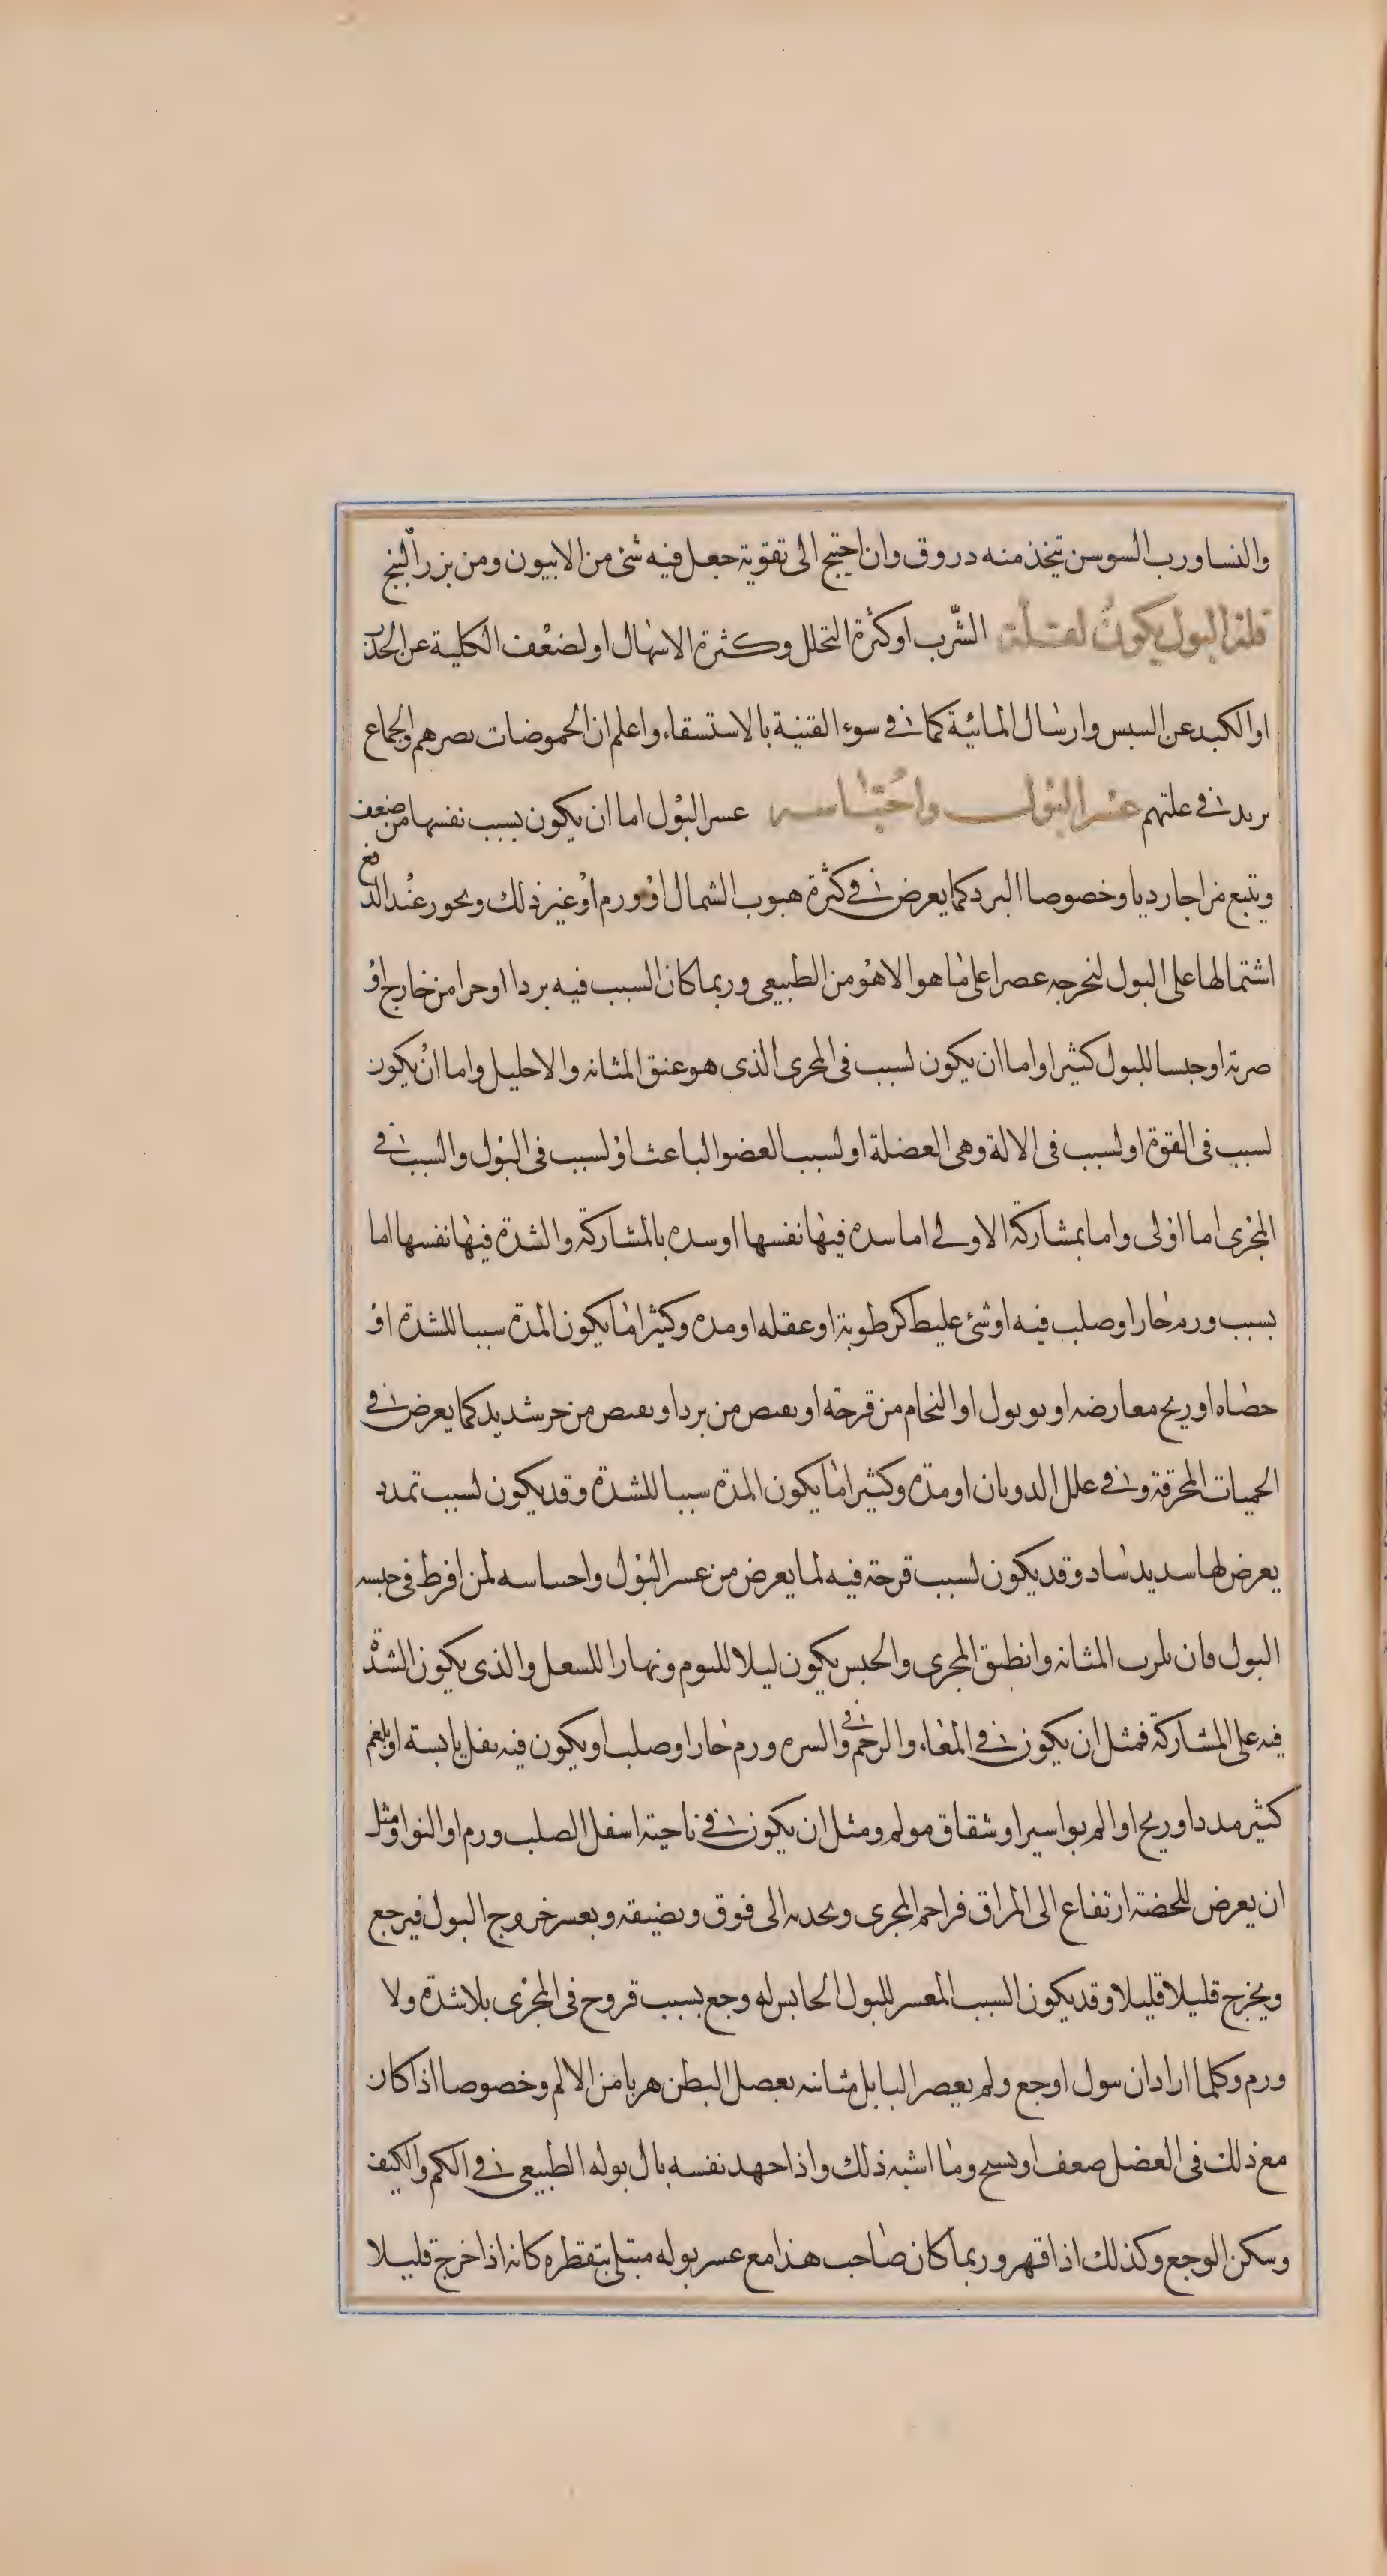 والنسا ورب السوسن تيخذ منه دروق وان احتيج الى تقوية جعل فيه شئ من الابيون ومن بزر البنج
قلة البول يكون لقلة الشرب او كثرة التحلل وكثرة الاسهال او لضعف الكلية عن الجذب
او الكبد عن السبس وارسال المائية كما فى سوء القنية بالاستسقاء واعلم ان الحموضات تصرهم والجماع
يريد فى علتهم عسر البول واحتباسه عسر البول اما ان يكون بسبب نفسها من ضعف
ويتبع مزاجا رديا وخصوصا البرد كما يعرض فى كثرة هبوب الشمال او ورم او غير ذلك ويحور عند الدفع
اشتمالها على البول لتخرجه عصرا على ما هو الاهو من الطبيعى وربما كان السبب فيه بردا او حرا من خارج او
ضربة او حبسا للبول كثيرا واما ان يكون لسبب فى المجرى الذى هو عنق المثانه والاحليل واما ان يكون
لسبب فى القوة او لسبب فى الالة وهى العضلة او لسبب العضو الباعث او لسبب فى البول والسبب فى
المجرى اما اولى واما بمشاركة الاولى اما سده فيها نفسها او سده بالمشاركة والشدة فيها نفسها اما
بسبب ورم حار او صلب فيه او شئ عليط كرطوبة او عقله او مده وكثيرا ما يكون المدة سببا للشدة او
حصاه او ريح معارضه او بوبول او النحام من قرحة او بقبص من برد او بقبص من حر شديد كما يعرض فى
الحميات المحرقة وفى علل الدوبان او مدة وكثيرا ما يكون المدة سببا للشدة وقد يكون لسبب تمدد
يعرض لها سديد ساد وقد يكون لسبب قرحة فيه لما يعرض من عسر البول واحساسه لمن افرط فى حبسه
البول فان المثانه وانطبق المجرى والحبس يكون ليلا للنوم ونهارا للسعل والذى يكون الشدة
فيه على المشاركة فمثل ان يكون فى المعاء والرحم وفى السره ورم حار او صلب او يكون فيه ثفل يابسة او بلغم
كثير مدد او ريح او الم بواسير او شقاق مولم ومثل ان يكون فى ناحية اسفل الصلب ورم او النوا ومثل
ان يعرض للخصية ارتفاع الى المراق فزاحم المجرى ويجدبه الى فوق ويضيقه ويعسر خروج البول فيرجع
ويخرج قليلا قليلا وقد يكون السبب المعسر للبول الحابس له وجع بسبب قروح فى المجرى بلا شدة ولا
ورم وكلما اراد ان سول اوجع ولم يعصر البابل مثانته بعصل البطن هربا من الالم وخصوصا اذا كان
مع ذلك فى العضل ضعف او بسج وما اشبه ذلك واذا جهد نفسه بال بوله الطبيعى فى الكم والكيف
وسكن الوجع وكذلك اذا قهر وربما كان صاحب هذا مع عسر بوله مبتلى بتقطره كانه اذا خرج قليلا